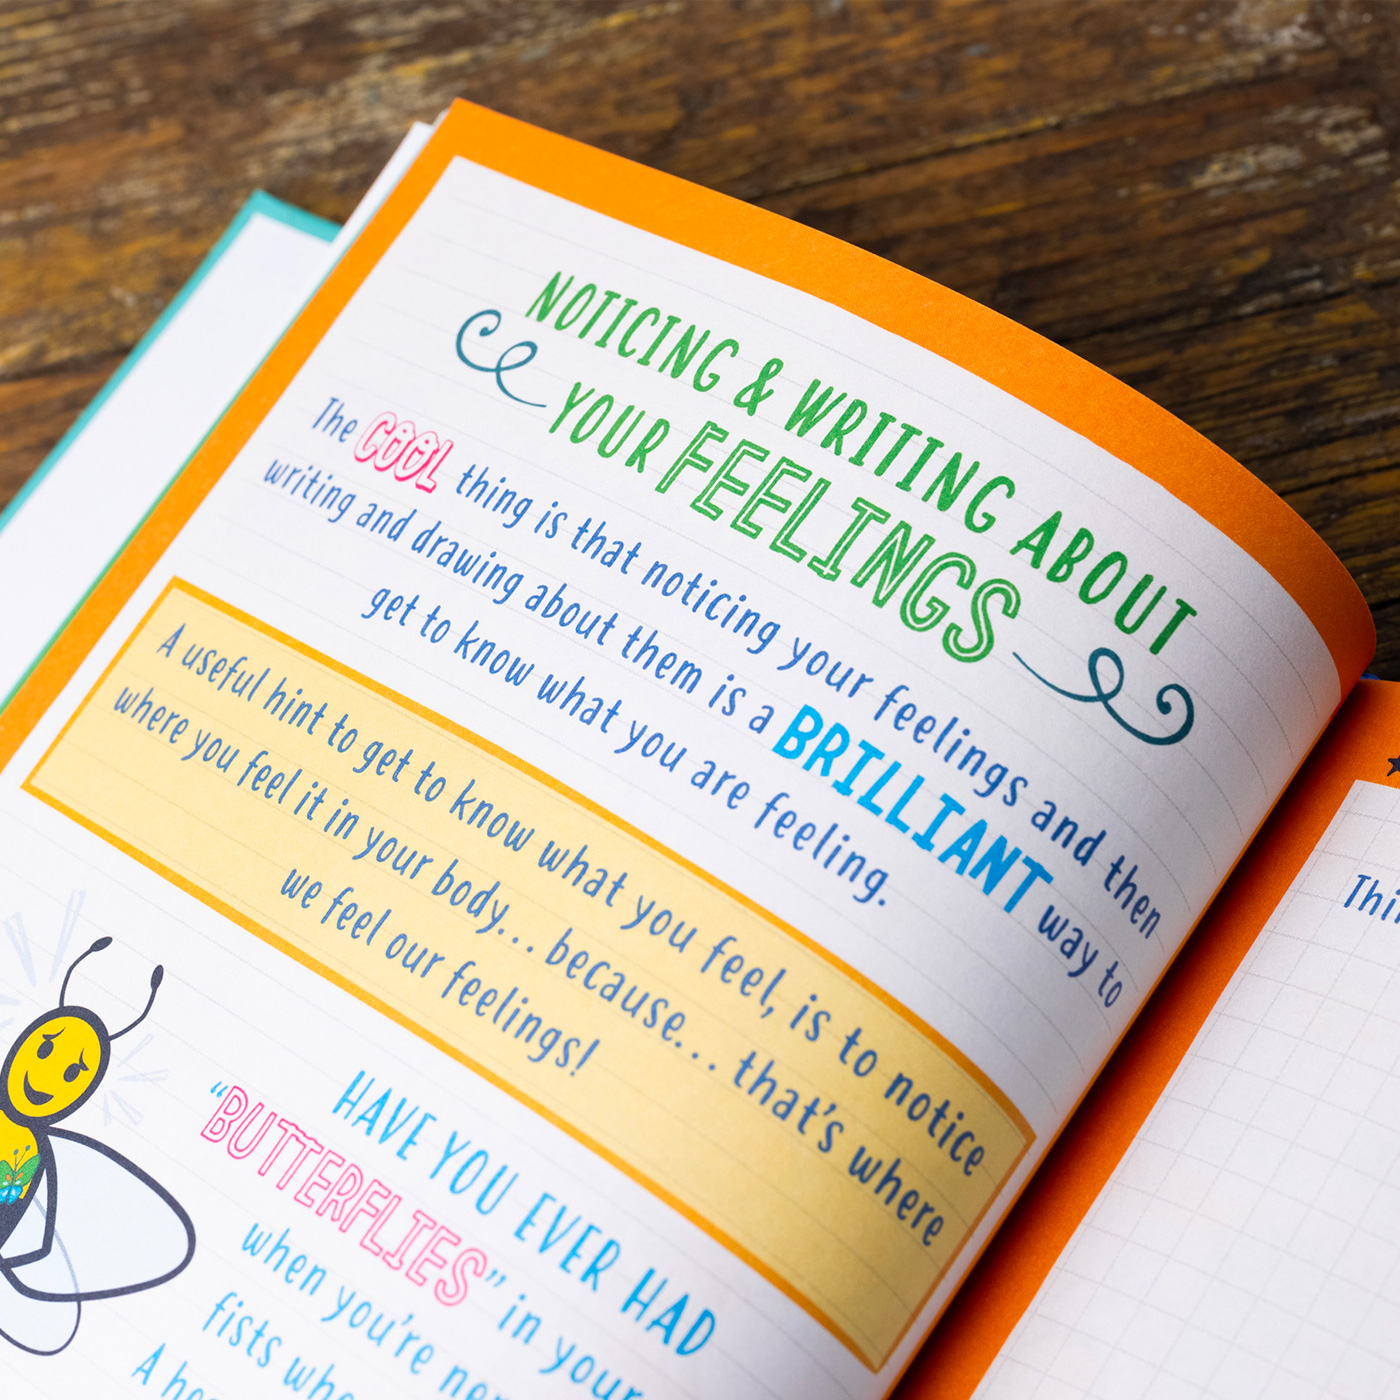 NOTICING & WRITING ABOUT
YOUR FEELINGS
The COOL thing is that noticing your feelings and then
writing and drawing about them is a BRILLIANT way to
get to know what you are feeling.
A useful hint to get to know what you feel, is to notice
where you feel it in your body... because... that's where
we feel our feelings!
HAVE YOU EVER HAD
“BUTTERFLIES” in your
when you're
fists
A